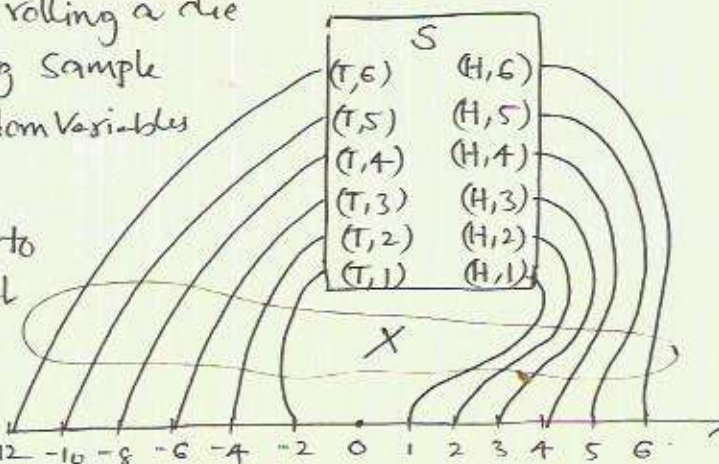 rolling a die
g Sample
dom Variables
to
l
S
(T,6) (H,6)
(T,5) (H,5)
(T,4) (H,4)
(T,3) (H,3)
(T,2) (H,2)
(T,1) (H,1)
X
12 -10 -8 -6 -4 -2 0 1 2 3 4 5 6